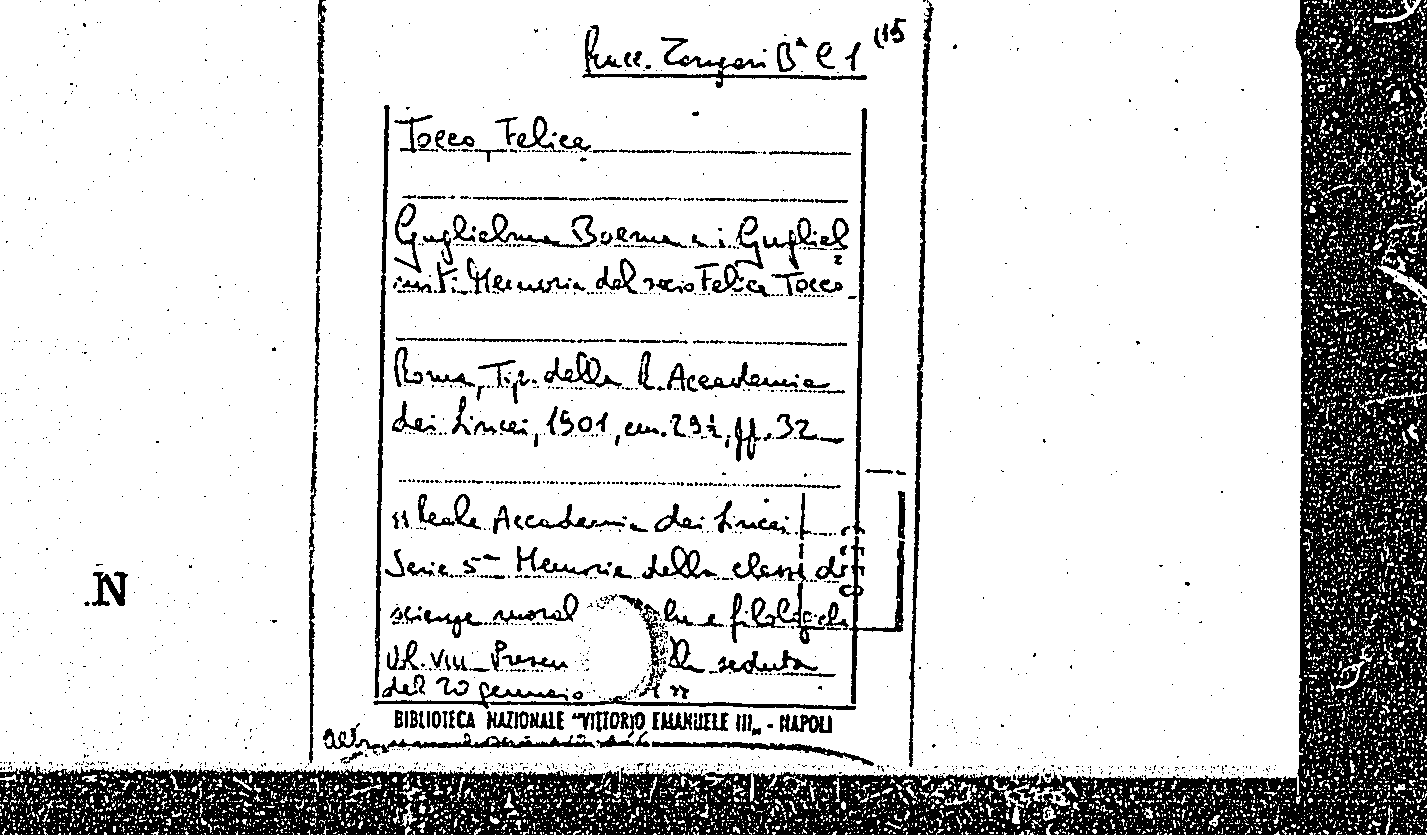 Racc. Zangari Bª C 1 (15
Tocco, Felice
Guglielma Boema e i Gugliel
miti. Memoria del socio Felice Tocco.
Roma, Tip. della R. Accademia
dei Lincei, 1901, cm. 29½, ff. 32
"Reale Accademia dei Lincei
Serie 5ª Memorie della classe di
scienze moral he e filologiche
Vol. VIII Presen lla seduta
del 20 gennaio "
BIBLIOTECA NAZIONALE "VITTORIO EMANUELE III„ - NAPOLI
N